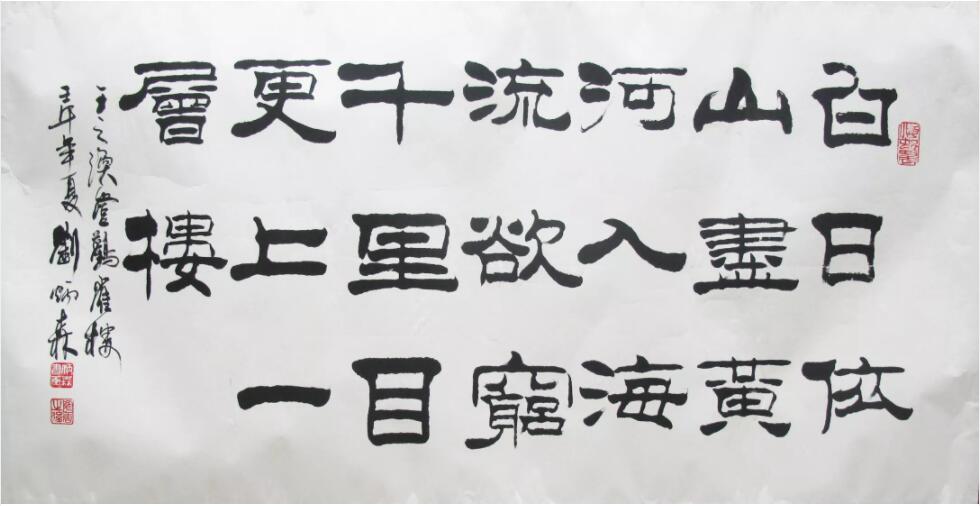 白日依
山盡黃
河入海
流欲窮
千里目
更上一
層樓
王之渙登鸛雀樓
年夏劉炳森